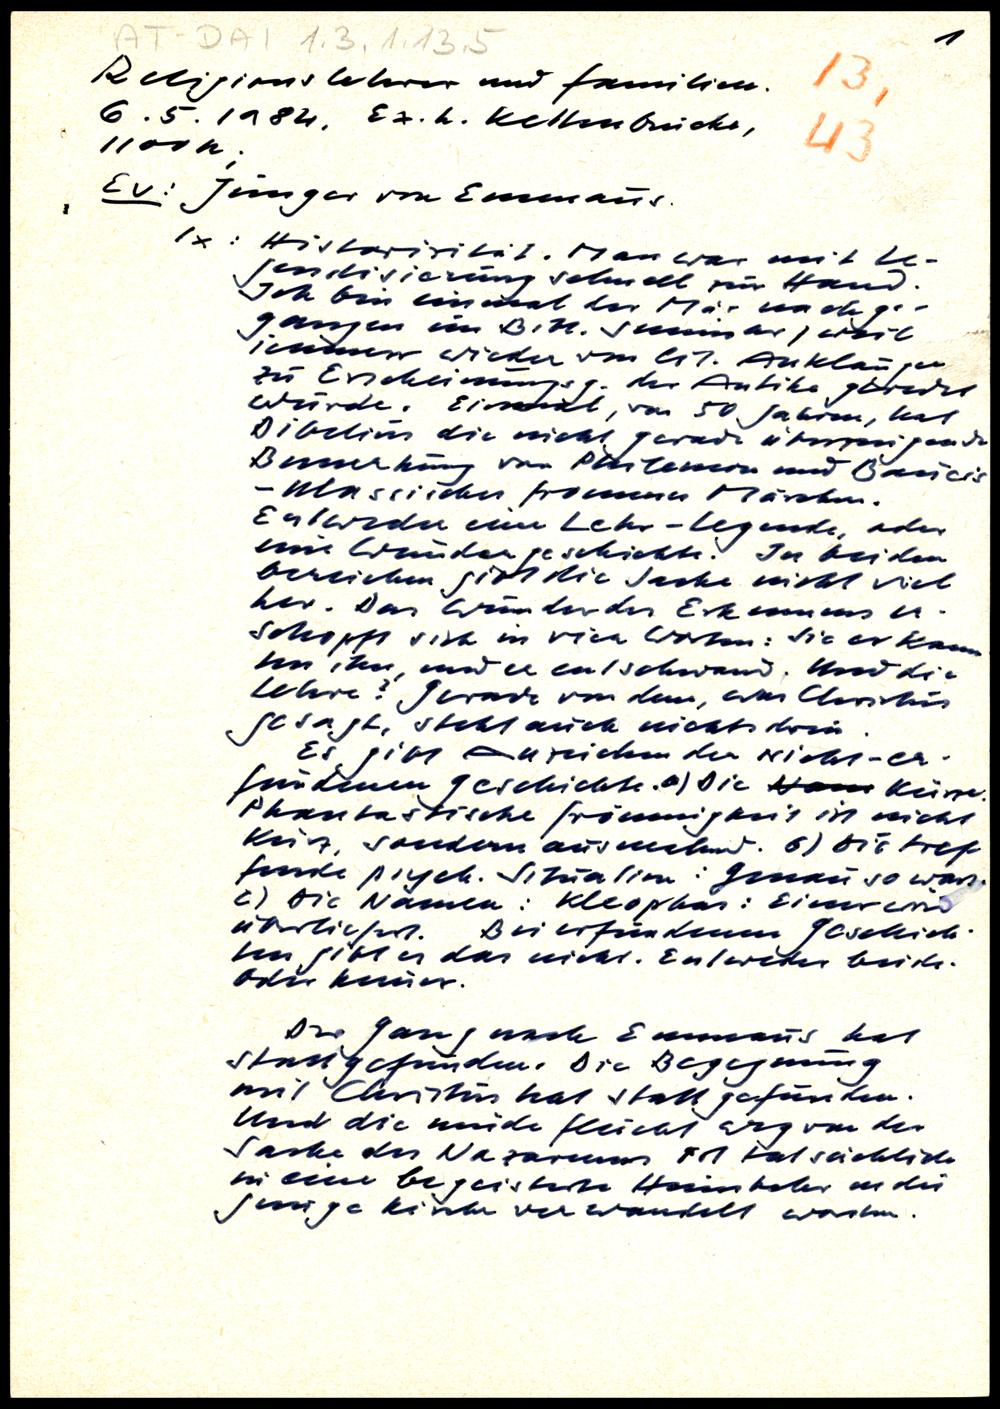 AT-DAI 1.3.1.13.5
1
Religionslehrer und Familien.
13,
6.5.1984, Ex.h. Kettenbrücke,
43
1100h.
Ev: Jünger von Emmaus.
1x: Historizität. Man war mit Le-
gendisierung schnell zur Hand.
Ich bin einmal der Mär nachge-
gangen im Bibl. Seminar, weil
immer wieder von lit. Anklängen
zu Erscheinungsg. der Antike geredet
wurde. Einmal, vor 50 Jahren, hat
Dibelius die nicht gerade überzeugende
Bemerkung von Philemon und Baucis
- klassischen frommen Märchen.
Entweder eine Lehr-Legende, oder
eine Wundergeschichte. In beiden
Bereichen gibt die Sache nicht viel
her. Das Wunder des Erkennens er-
schöpft sich in vier Worten: Sie erkann
ten ihn, und er entschwand. Und die
Lehre? Gerade von dem, was Christus
gesagt, steht auch nichts drin.
Es gibt Anzeichen der nicht-er-
fundenen Geschichte. a) Die Kürze.
Phantastische Frömmigkeit ist nicht
kurz, sondern b) Die tref
fende psych. Situation: Genau so wars.
c) Die Namen: Kleophas: Einer wird
überliefert. Bei erfundenen Geschich-
ten gibt es das nicht. Entweder beide.
Oder keiner.
Der Gang nach Emmaus hat
stattgefunden. Die Begegnung
mit Christus hat stattgefunden.
Und die müde Flucht weg von der
Sache des Nazareners ist tatsächlich
in eine begeisterte Heimkehr in die
junge Kirche verwandelt worden.